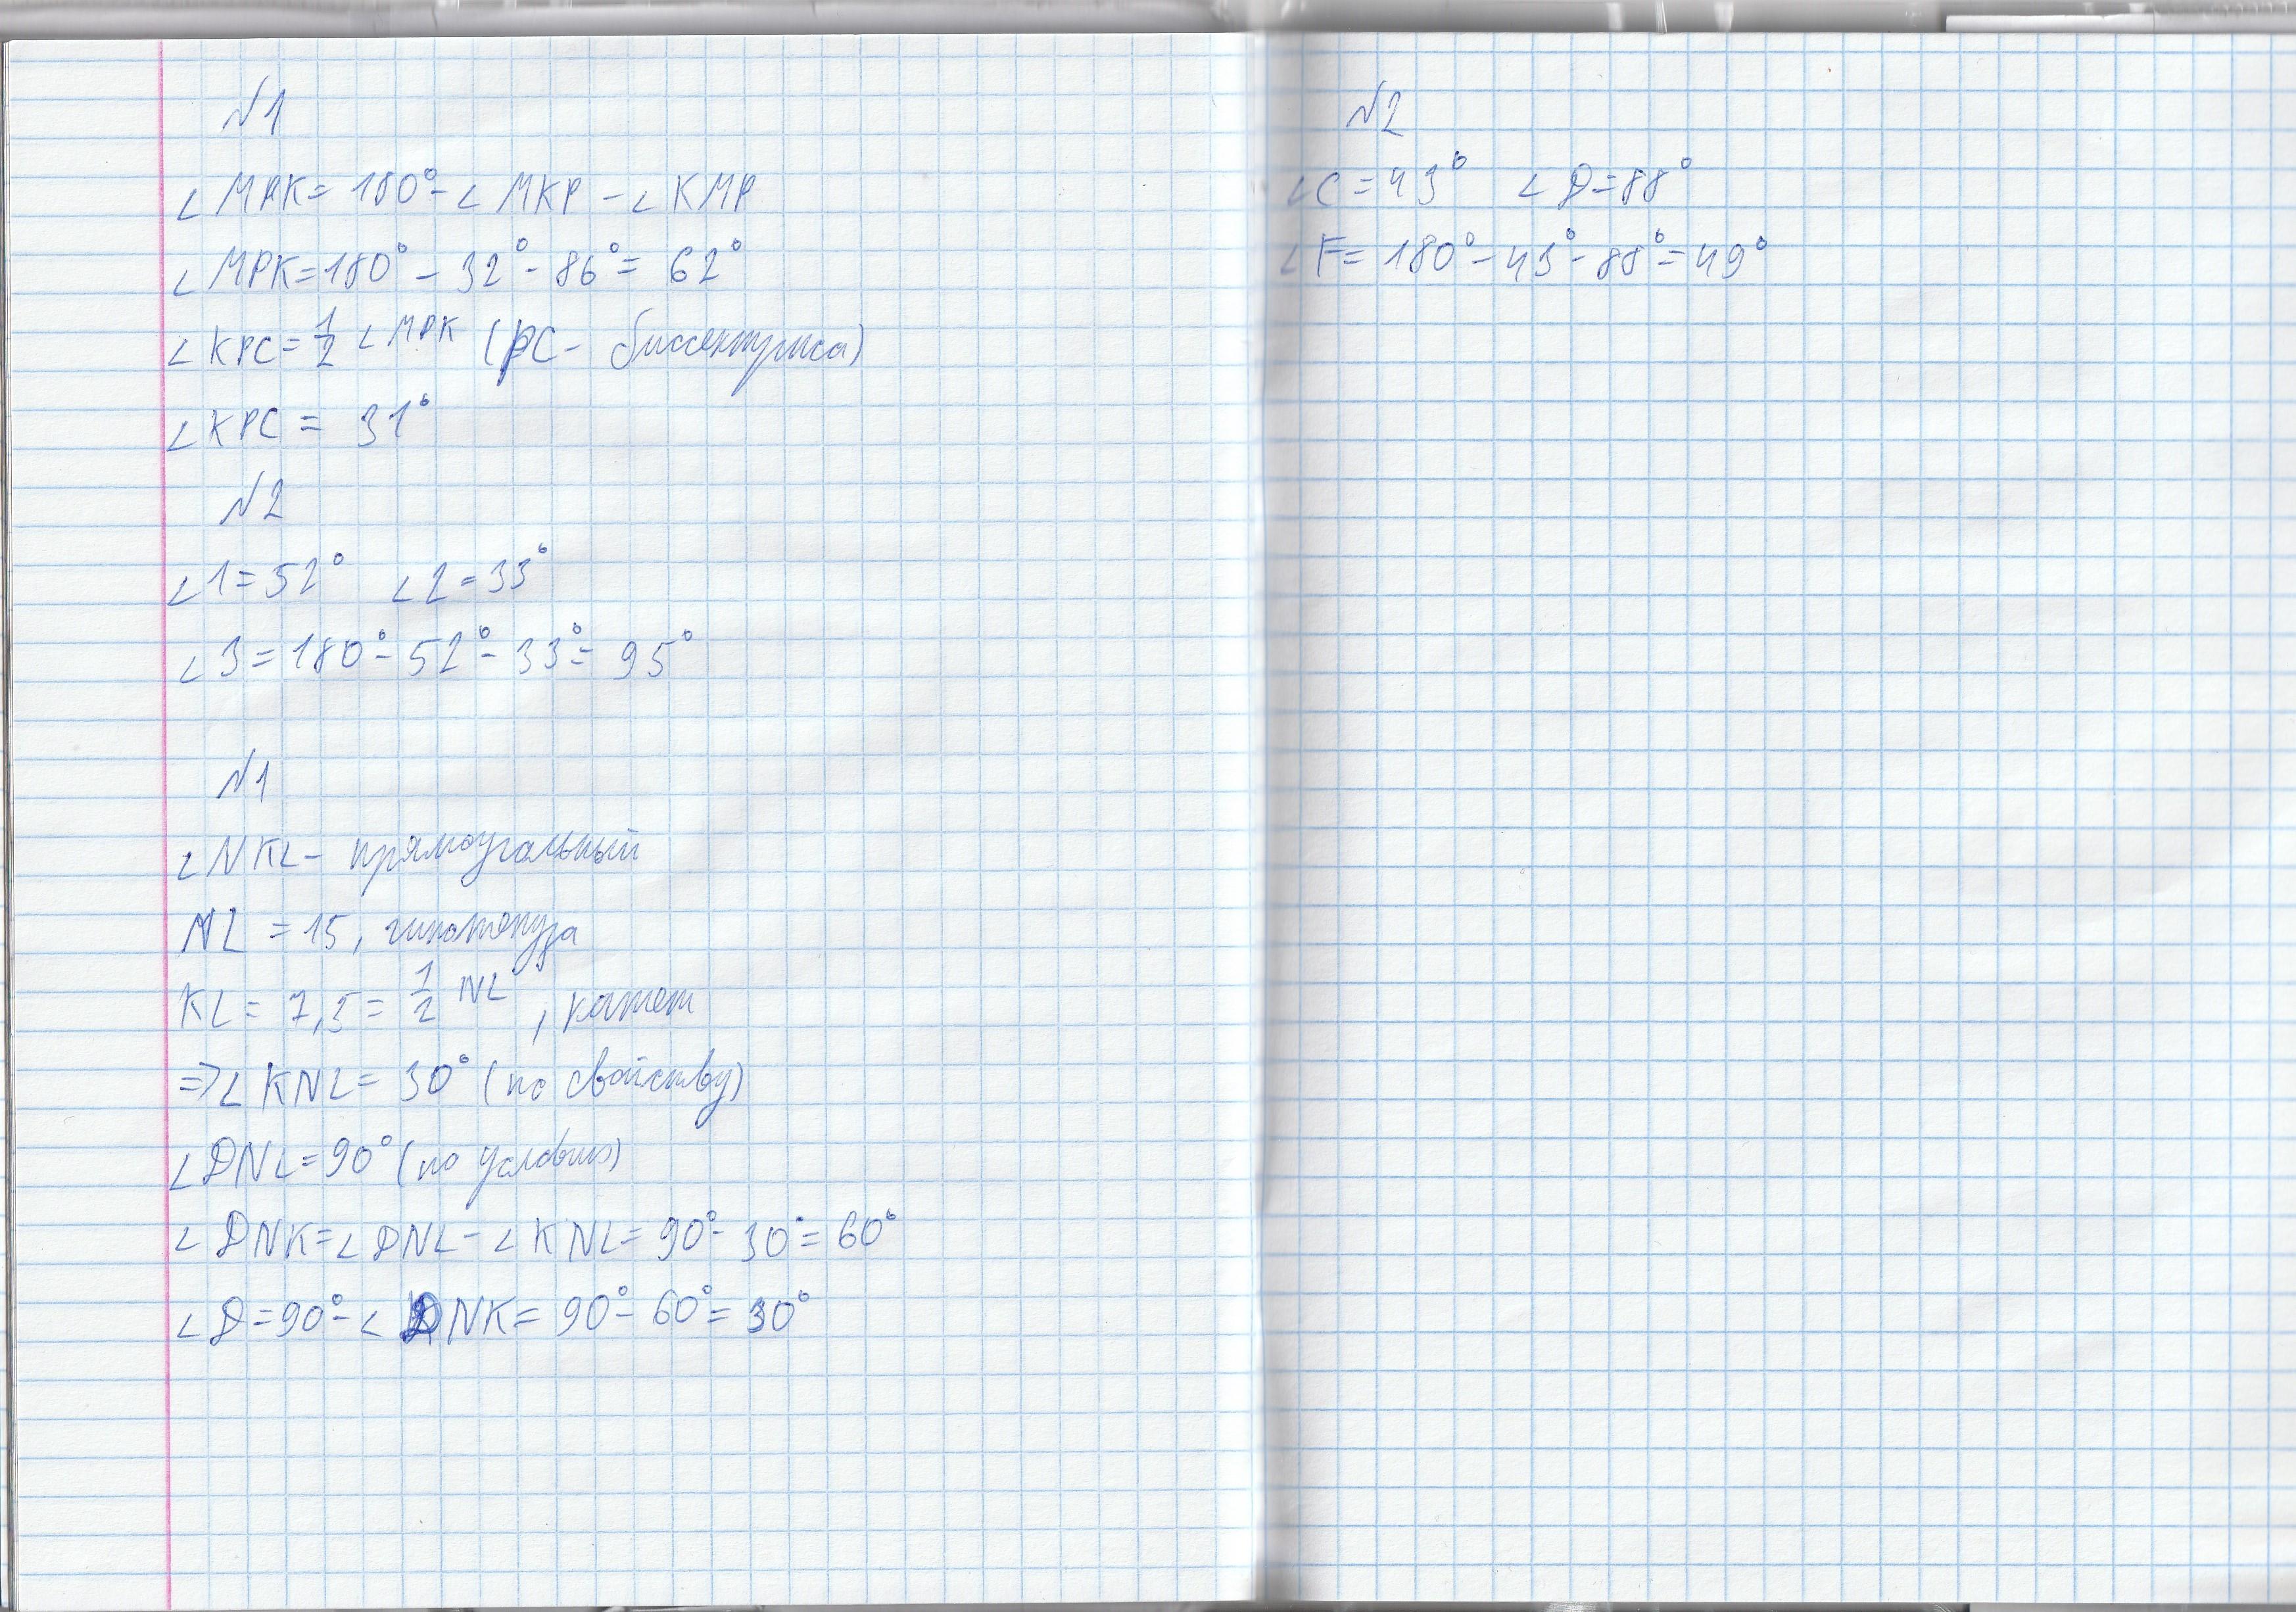 N1
∠MPK= 180°-∠MKP-∠KMP
∠MPK=180°-32°-86°=62°
∠KPC=1/2∠MPK (PC- биссектриса)
∠KPC = 31°
N2
∠1=52° ∠2=33°
∠3=180°-52°-33°=95°
N1
∠NKL- прямоугольный
NL =15, гипотенуза
KL= 7,5=1/2 NL, катет
=>∠KNL= 30° (по свойству)
∠DNL=90° (по условию)
∠DNK=∠DNL-∠KNL=90°-30°=60°
∠D=90°-∠DNK= 90°-60°=30°
N2
∠C=43° ∠D=88°
∠F= 180°-43°-88°=49°